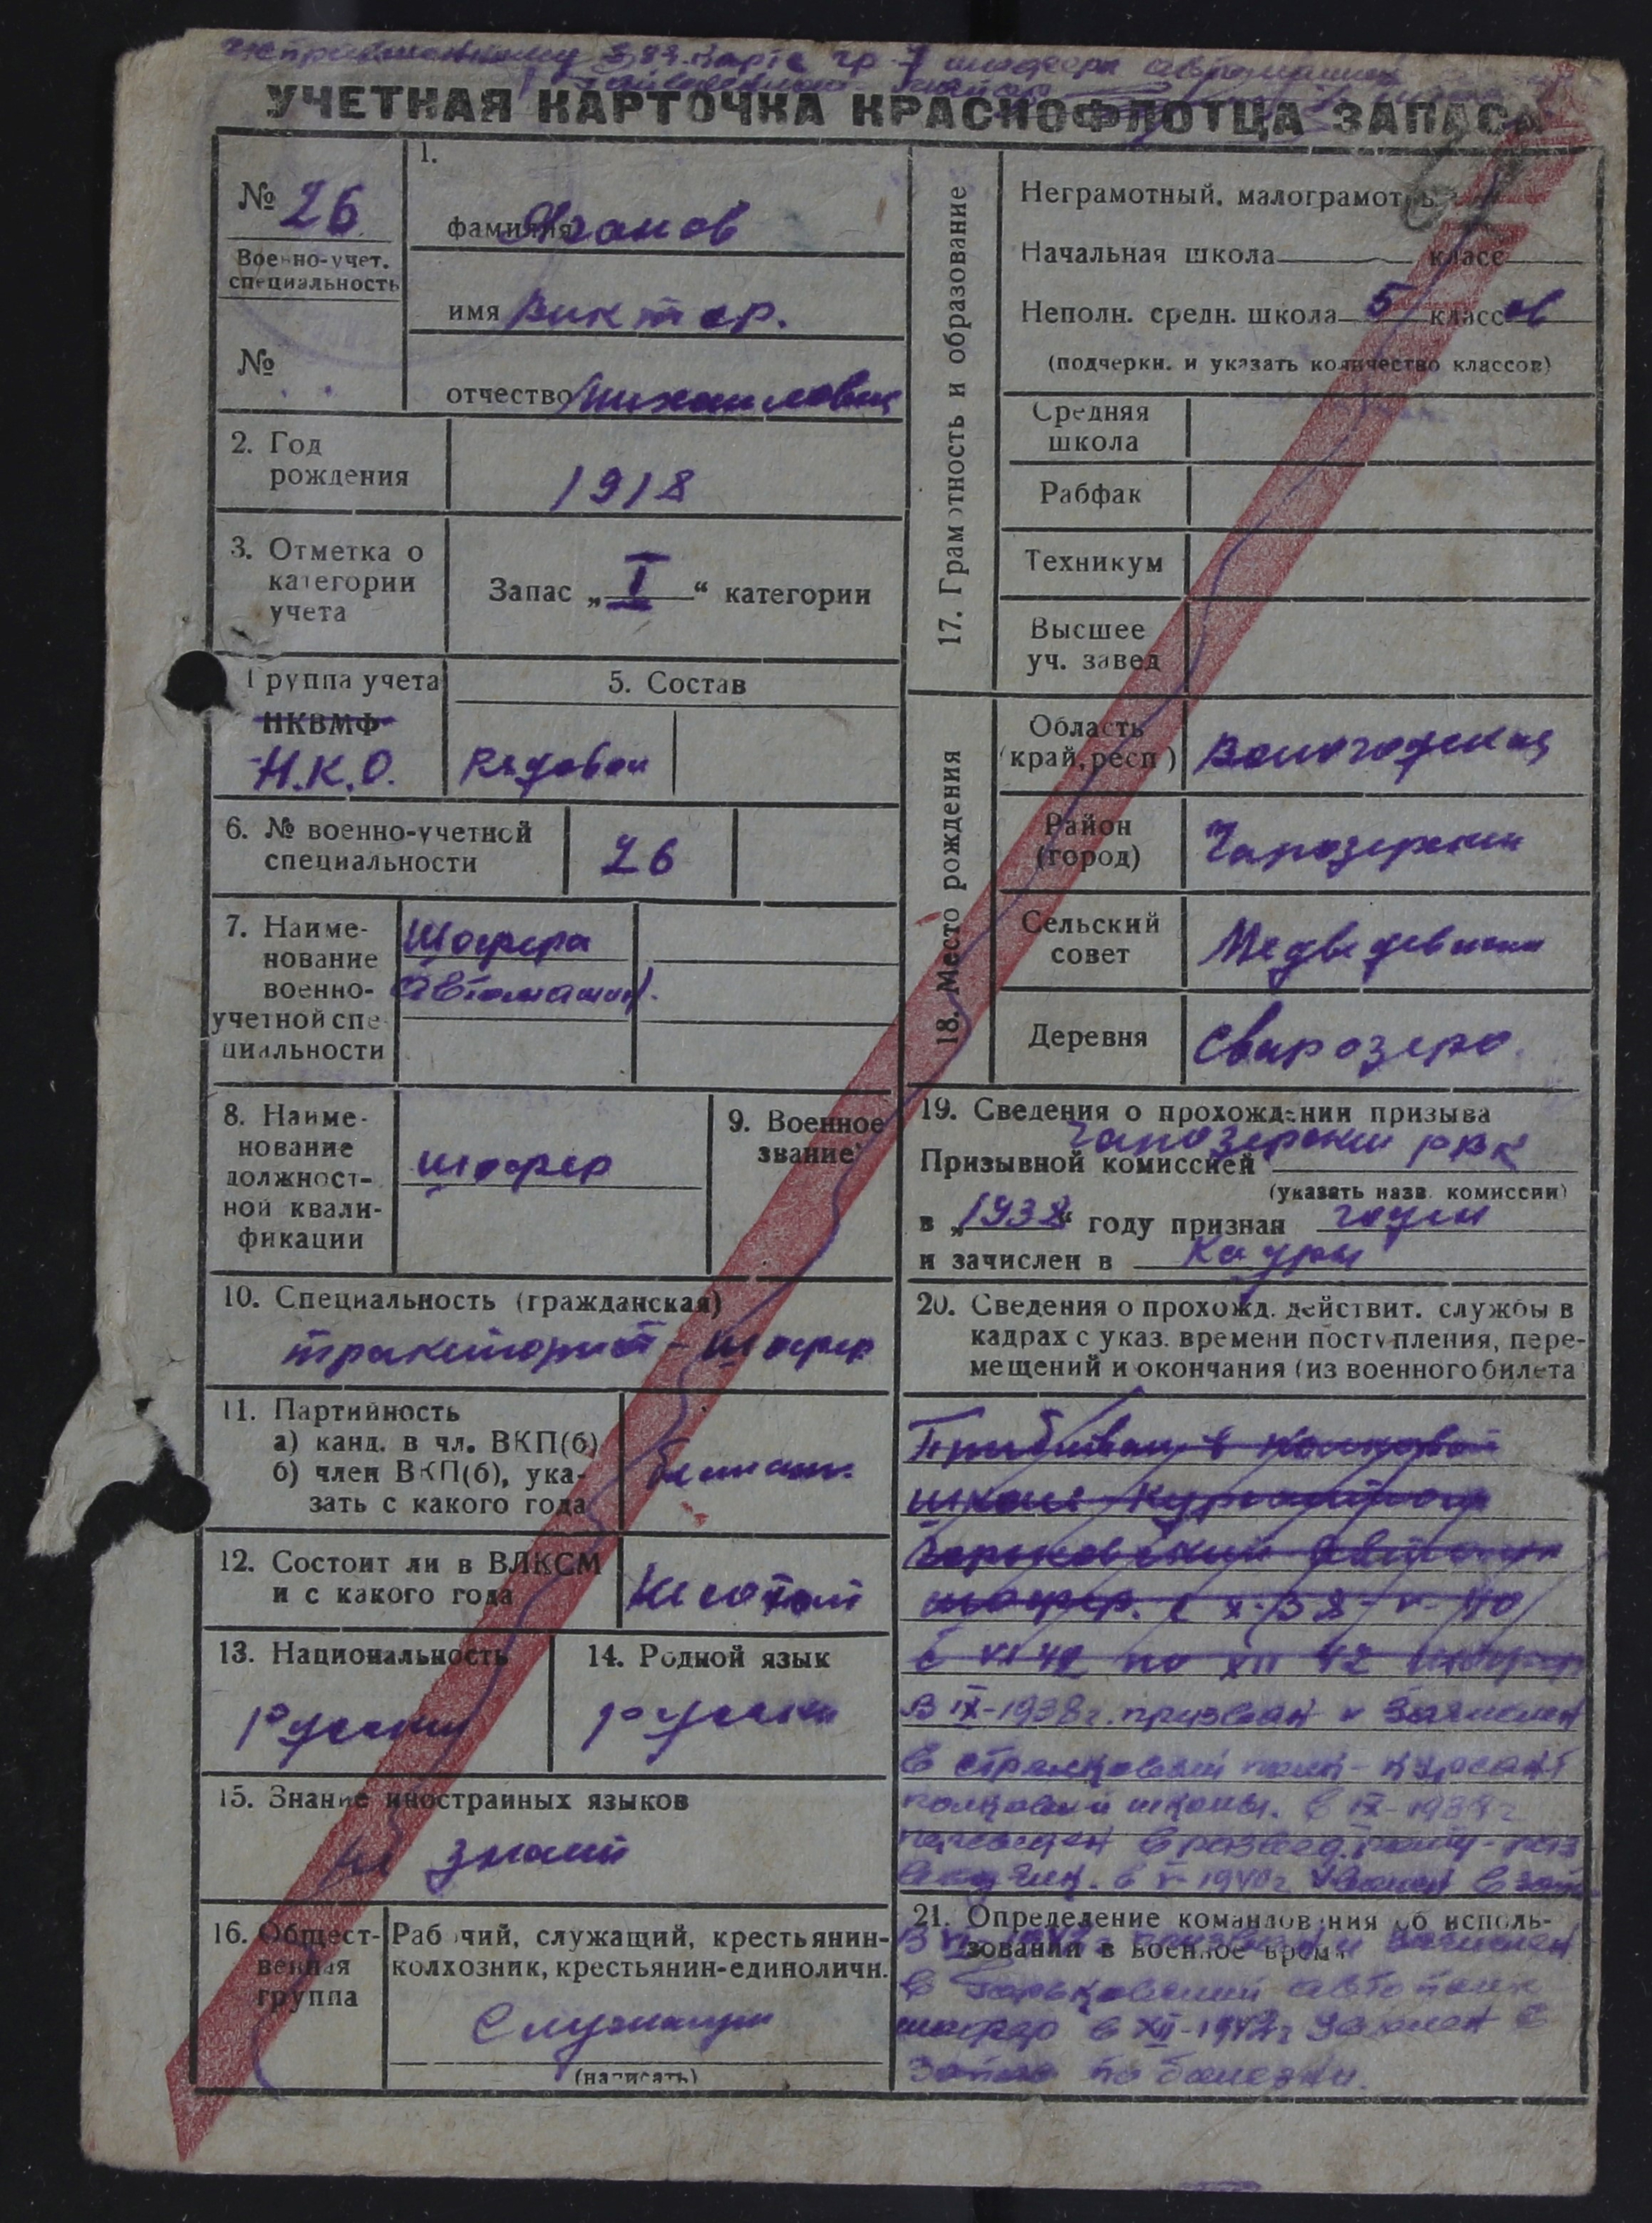 УЧЕТНАЯ КАРТОЧКА КРАСНОФЛОТЦА ЗАПАСА
№ 26
Военно-учет.
специальность
№
1.
фамилия
имя Виктор.
отчество Михайлович
2. Год
рождения
1918
3. Отметка о
категории
учета
Запас „ I “ категории
Группа учета
НКВМФ
Н.К.О.
5. Состав
Рядовой
6. № военно-учетной
специальности
26
7. Наиме-
нование
военно-
учетной спе-
циальности
Шофера
автомашин.
8. Наиме-
нование
должност-
ной квали-
фикации
шофер
9. Военное
звание
10. Специальность (гражданская)
тракторист - шофер
11. Партийность
а) канд. в чл. ВКП(б)
б) член ВКП(б), ука-
зать с какого года
12. Состоит ли в ВЛКСМ
и с какого года
Не состоит
13. Национальность
русский
14. Родной язык
русский
15. Знание иностранных языков
не знает
16. Общест-
венная
группа
Рабочий, служащий, крестьянин-
колхозник, крестьянин-единоличн.
Служащий
(написать)
17. Грамотность и образование
Неграмотный, малограмотн.
Начальная школа класс
Неполн. средн. школа 5 классов
(подчеркн. и указать количество классов)
Средняя
школа
Рабфак
Техникум
Высшее
уч. завед
18. Место рождения
Область
(край, респ)
Вологодская
Район
(город)
Чарозерский
Сельский
совет
Медведевский
Деревня
19. Сведения о прохождении призыва
Призывной комиссией Чарозерский РВК
(указать назв. комиссии)
в „1938“ году признан годен
и зачислен в кадры
20. Сведения о прохожд. действит. службы в
кадрах с указ. времени поступления, пере-
мещений и окончания (из военного билета
школе
Горьковский
шофер. с X-38
с VI 42 по XII 42
В IX-1938г. призван и зачислен
в стрелковый полк - курсант
полковой школы. в IX-1939г
переведен в развед. роту -
в V-1940г уволен в
21. Определение командования об исполь-
зовании в военное время
призван и зачислен
в Горьковский автополк
шофер в XII-1942г уволен в
запас по болезни.